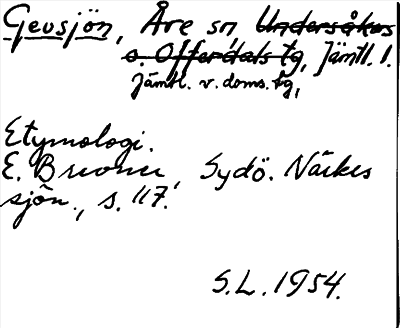 Geusjön, Åre sn, Undersåkers
o. Offerdals tg, Jämtl. l.
Jämtl. v. doms. tg,
Etymologi.
E. Brevner, Sydö. Närkes
sjön., s. 117.
S.L. 1954.